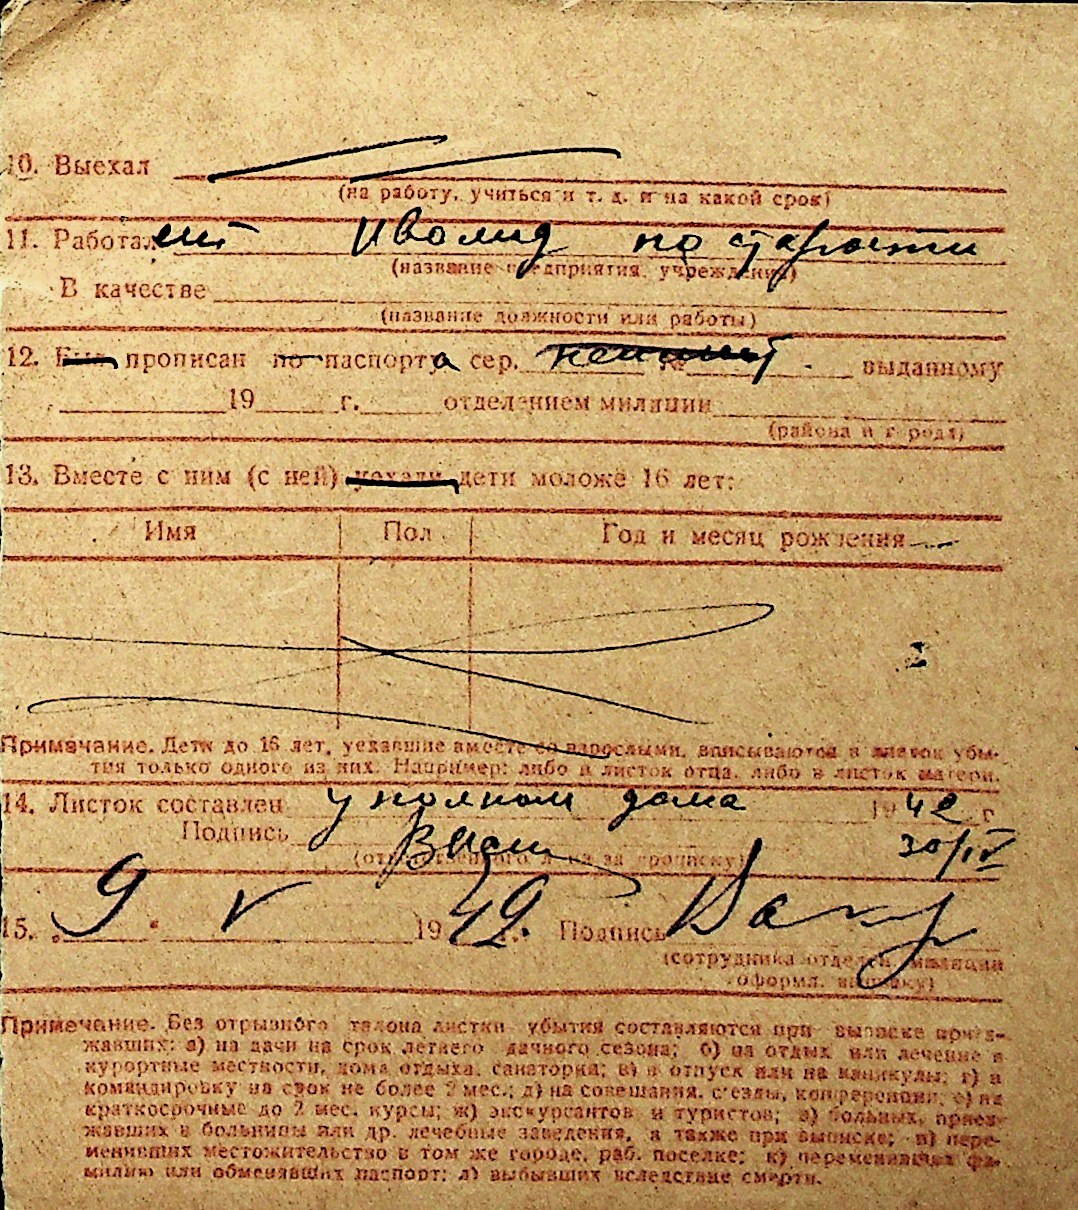 10. Выехал
(на работу, учиться и т. д. и на какой срок)
11. Работает Иволид по старости
(название предприятия, учреждения)
В качестве
(название должности или работы)
12. Был прописан по паспорта сер. № выданному
19 г. отделением милиции
(района и города)
13. Вместе с ним (с ней) уехали дети моложе 16 лет:
Имя Пол Год и месяц рождения
Примечание. Дети до 16 лет, уехавшие вместе со взрослыми, вписываются в листок убы-
тия только одного из них. Например: либо в листок отца, либо в листок матери.
14. Листок составлен дома 1942 г
Подпись 30/IV
(ответственного лица за прописку)
15. „9" V 1942 г. Подпись
(сотрудника отделен. милиции
оформл. выписку)
Примечание. Без отрывного талона листки убытия составляются при выписке приез-
жавших: а) на дачи на срок летнего дачного сезона; б) на отдых или лечение в
курортные местности, дома отдыха, санатории; в) в отпуск или на каникулы; г) в
командировку на срок не более 2 мес.; д) на совещания, съезды, конференции; е) на
краткосрочные до 2 мес. курсы; ж) экскурсантов и туристов; з) больных, приез-
жавших в больницы или др. лечебные заведения, а также при выписке; и) пере-
менивших местожительство в том же городе, раб. поселке; к) переменивших фа-
милию или обменявших паспорт; л) выбывших вследствие смерти.